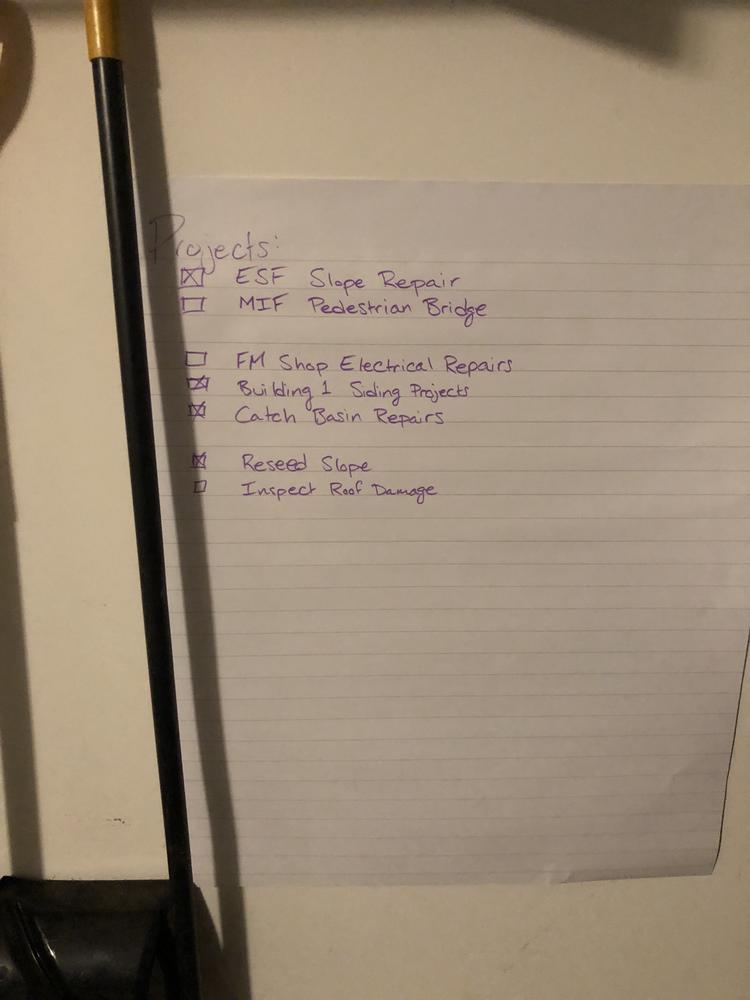 Projects:
☒ ESF Slope Repair
☐ MIF Pedestrian Bridge
☐ FM Shop Electrical Repairs
☒ Building 1 Siding Projects
☒ Catch Basin Repairs
☒ Reseed Slope
☐ Inspect Roof Damage